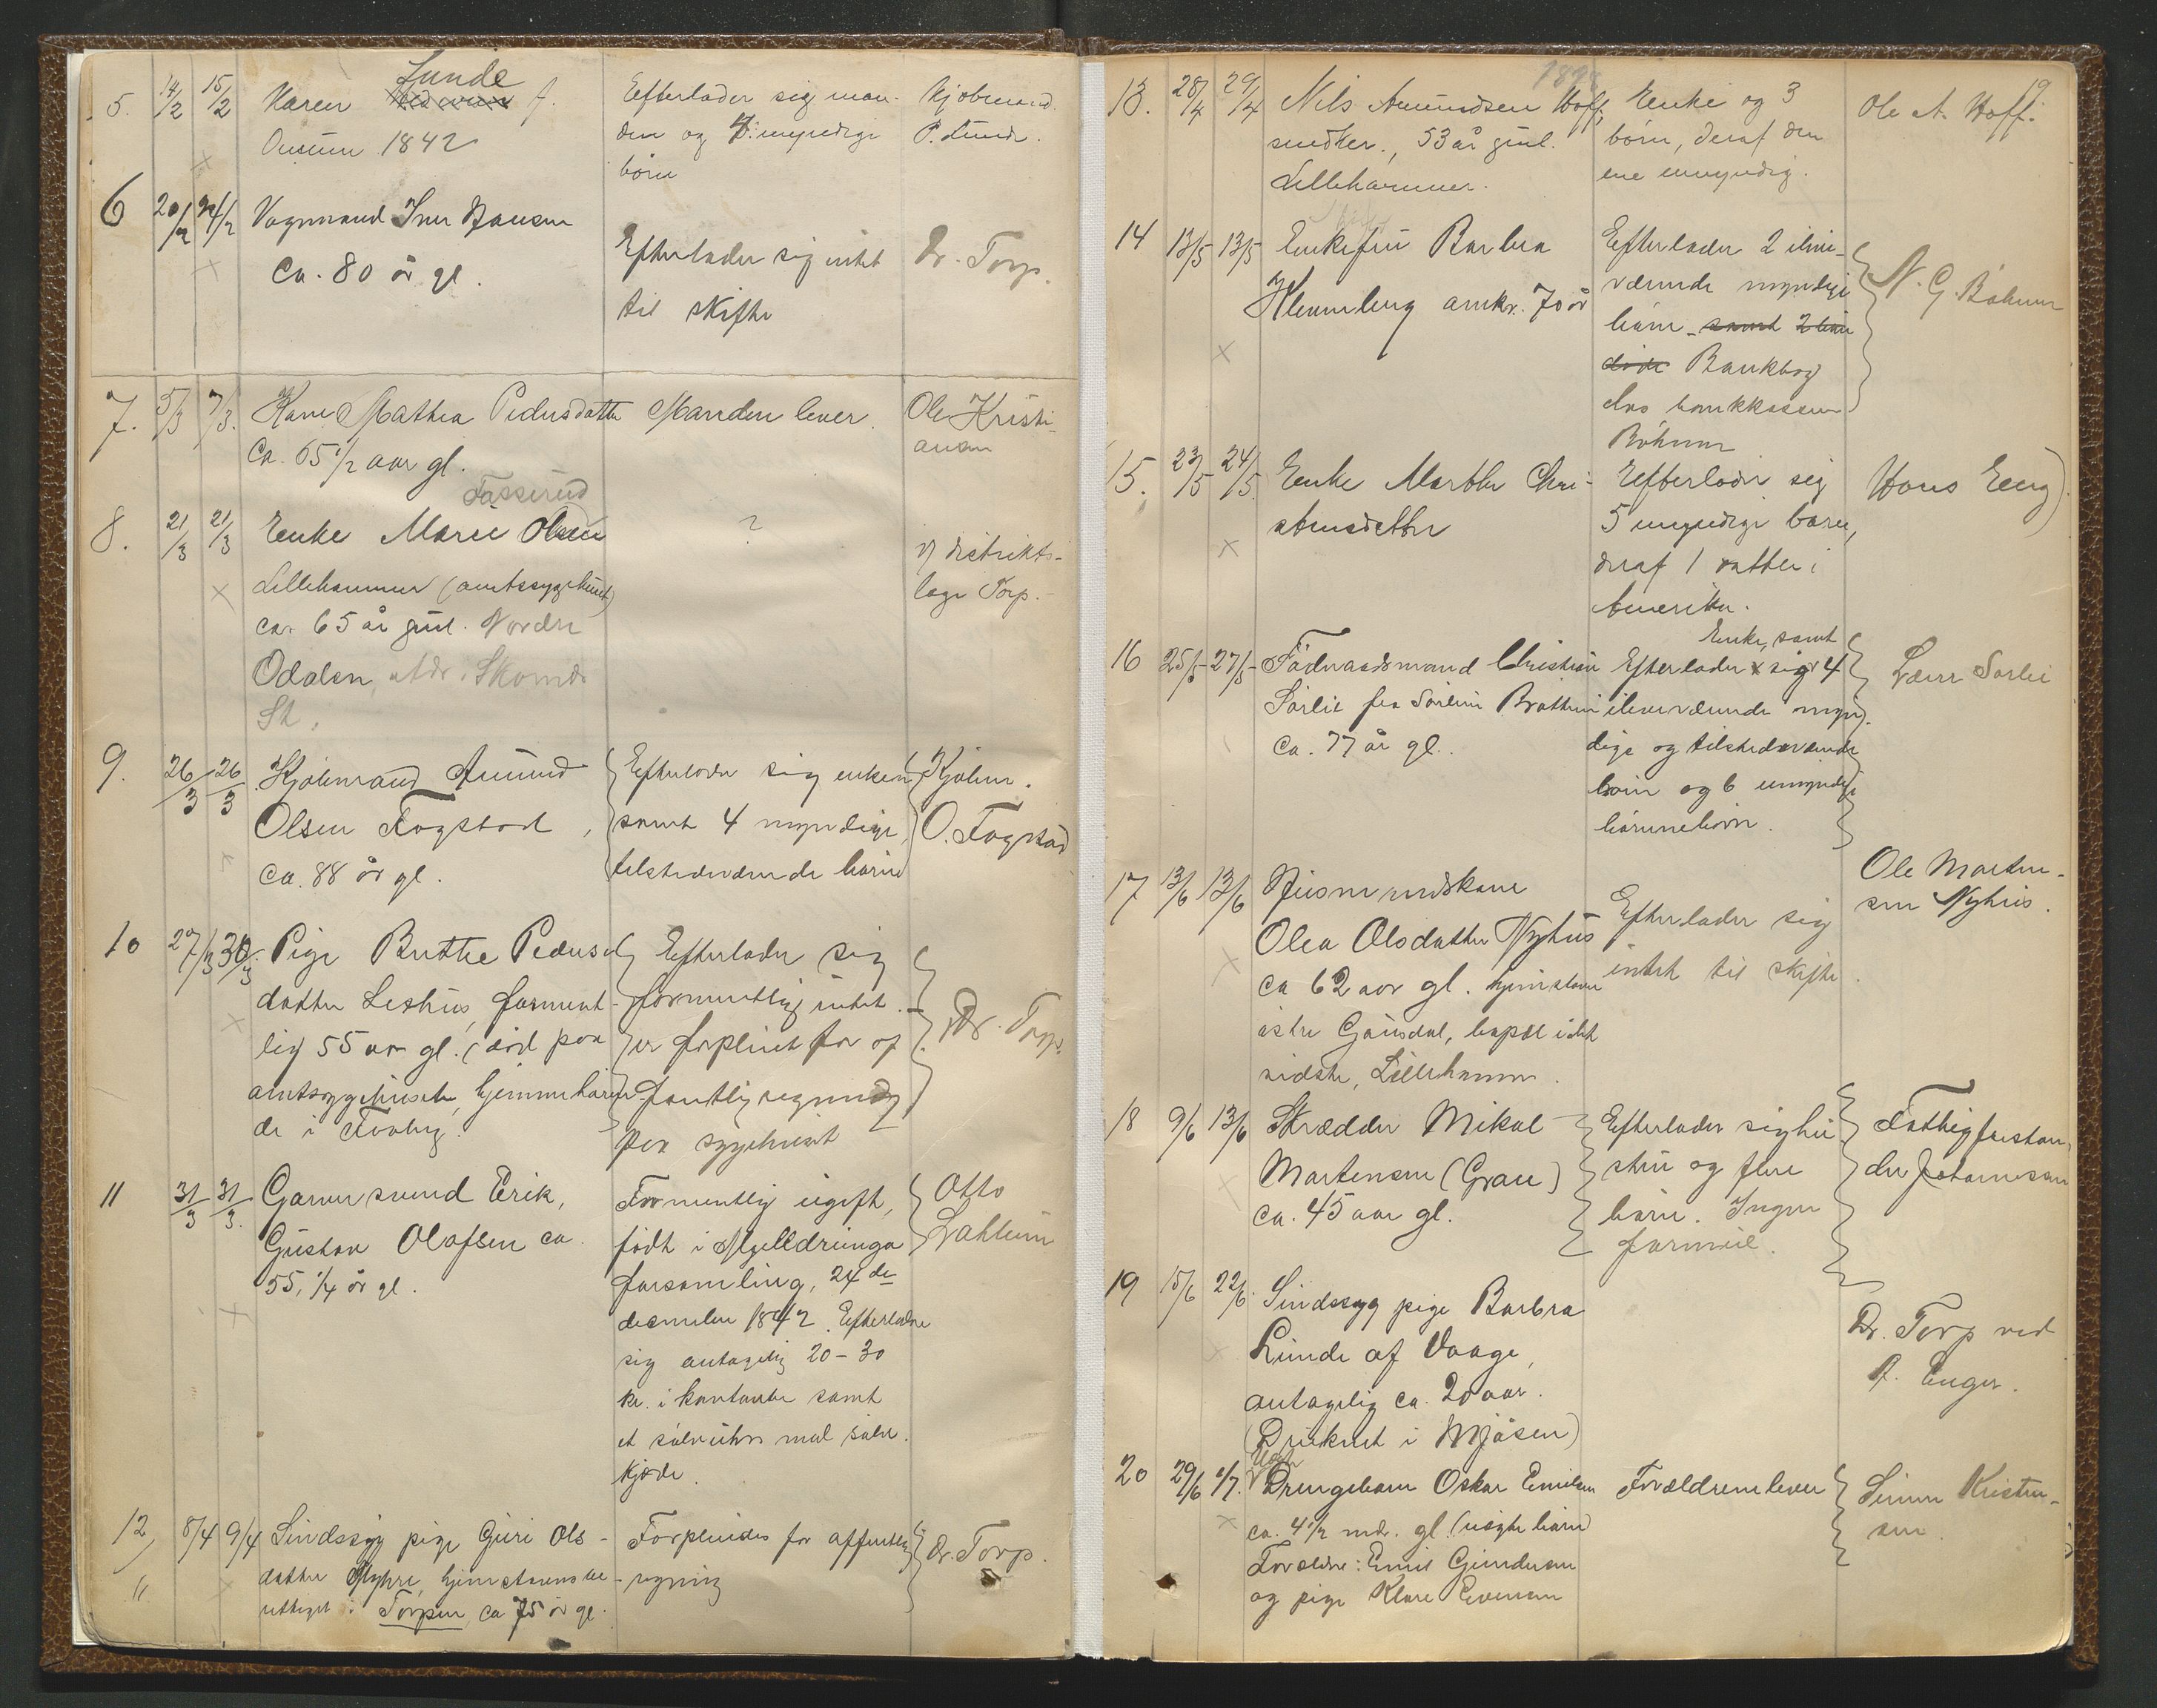 5. 14/2 15/2 Karen Lunde f.
Onsum 1842
Efterlader sig man-
den og 7 umyndige
börn
Kjöbmand
P. Lunde.
6 20/2 24/2 Vognmand Iver Hansen
Ca. 80 år gl.
Efterlader sig intet
til skifte
Dr. Torp.
7. 5/3 7/3. Kone Mathea Pedersdatter
Ca. 65 1/2 aar gl.
Manden lever.
Ole Kristi-
ansen
8. 21/3 21/3 Enke Marie Olsen
Fosserud
Lillehammer (amtssygehuset)
ca. 65 år gml. Nordre
Odalen, Skarnes
St.
?
v/ distrikts-
læge Torp.
9. 26/3 26/3 Kjöbmand Amund
Olsen Fogstad,
ca. 88 år gl.
Efterlader sig enken
samt 4 myndige,
tilstedeværende börn
Kjöbm.
O. Fogstad
10 27/3 30/3 Pige Berthe Peders-
datter Leshus, forment-
lig 55 aar gl. (död paa
amtssygehuset, hjemmehören-
de i Faaberg.
Efterlader sig
formentlig intet.
er forpleiet for of-
fentlig regning
paa sygehuset
Dr. Torp.
11 31/3 31/3. Garversvend Erik,
Gustav Olafsen ca.
55, 1/4 år gl.
Formentlig ugift,
födt i Mjelldrunga
forsamling, 24de
december 1842. Efterlader
sig antagelig 20-30
kr. i kontanter samt
et sölvuhr med sölv-
kjæde.
Otto
Dahlum
12, 8/4 9/4 Sindssyg pige Guri Ols-
datter Myhre, hjemstavnsbe-
rettiget i Torpen, ca 75 år gl.
Forpleiedes for offentlig
regning
Dr. Torp.
1898
19.
13. 28/4 29/4 Nils Amundsen Hoff,
snedker, 53 år gml.
Lillehammer.
Enke og 3
börn, deraf den
ene umyndig.
Ole A. Hoff.
14 13/5 13/5 Enkefru Barbra
Klevenberg omkr. 70 år
Efterlader 2 ilive-
værende myndige
börn - samt 2 börn
döde Bankbog
hos bankkasserer
Böhmer
N. G. Böhmer
15. 23/5 24/5. Enke Marthe Chri-
stensdatter
Efterlader sig
5 myndige börn,
deraf 1 datter i
Amerika.
Hans Eeng
16 25/5 27/5 Föderaadsmand Christian
Sörlie fra Sörlien Brötum
ca. 77 år gl.
Enke, samt
Efterlader sig 4
ilivevärende myn-
dige og tilstedeværende
börn og 6 umyndige
börnebörn.
Lars Sörlie
17 13/6 13/6 Husmandskone
Olea Olsdatter Nyhus
ca 62 aar gl. hjemstavn
östre Gausdal, bopæl i det
sidste, Lillehammer.
Efterlader sig
intet til skifte.
Ole Marten-
sen Nyhus.
18 9/6 13/6 Skrædder Mikal
Martensen (Grau)
ca. 45 aar gl.
Efterlader sig hu-
stru og flere
börn. Ingen
formue.
Fattigforstan-
der Johannesen
19 15/6 22/6. Sindssyg pige Barbra
Lunde af Vaage,
antagelig ca. 20 aar.
(Druknet i Mjösen)
Dr. Torp ved
A. Enger.
20 29/6 1/7. Drengebarn Oskar Emilsen
ca. 4 1/2 mdr. gl. (uægte barn)
Forældre: Emil Gundersen
og pige Klara Evensen
Forældrene lever
Simen Kristen-
sen.